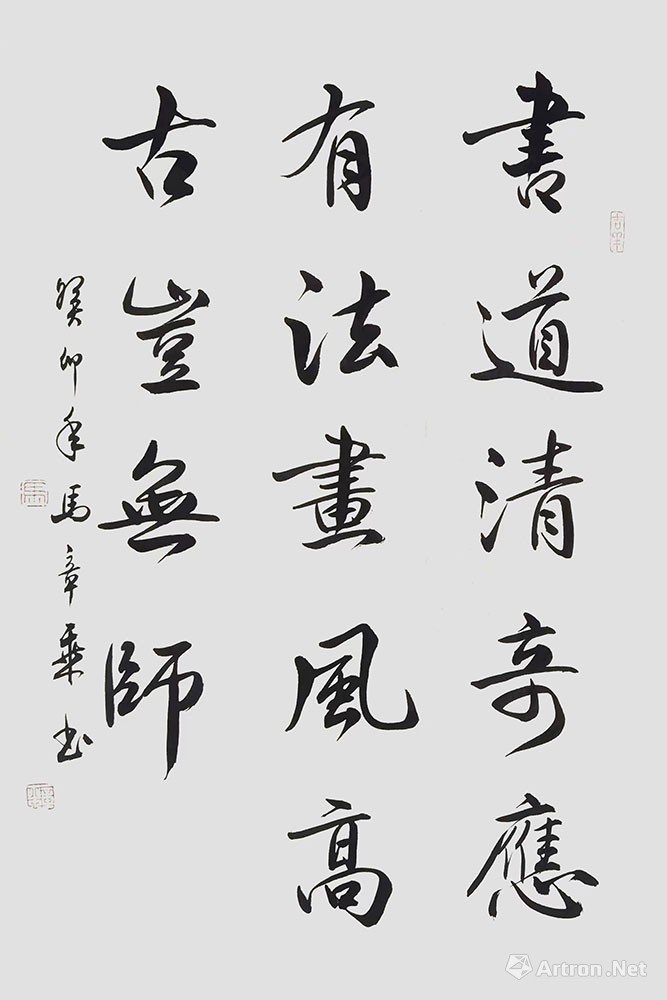 書道清奇應
有法畫風高
古豈無師
癸卯年馬章乘书
Artron.Net